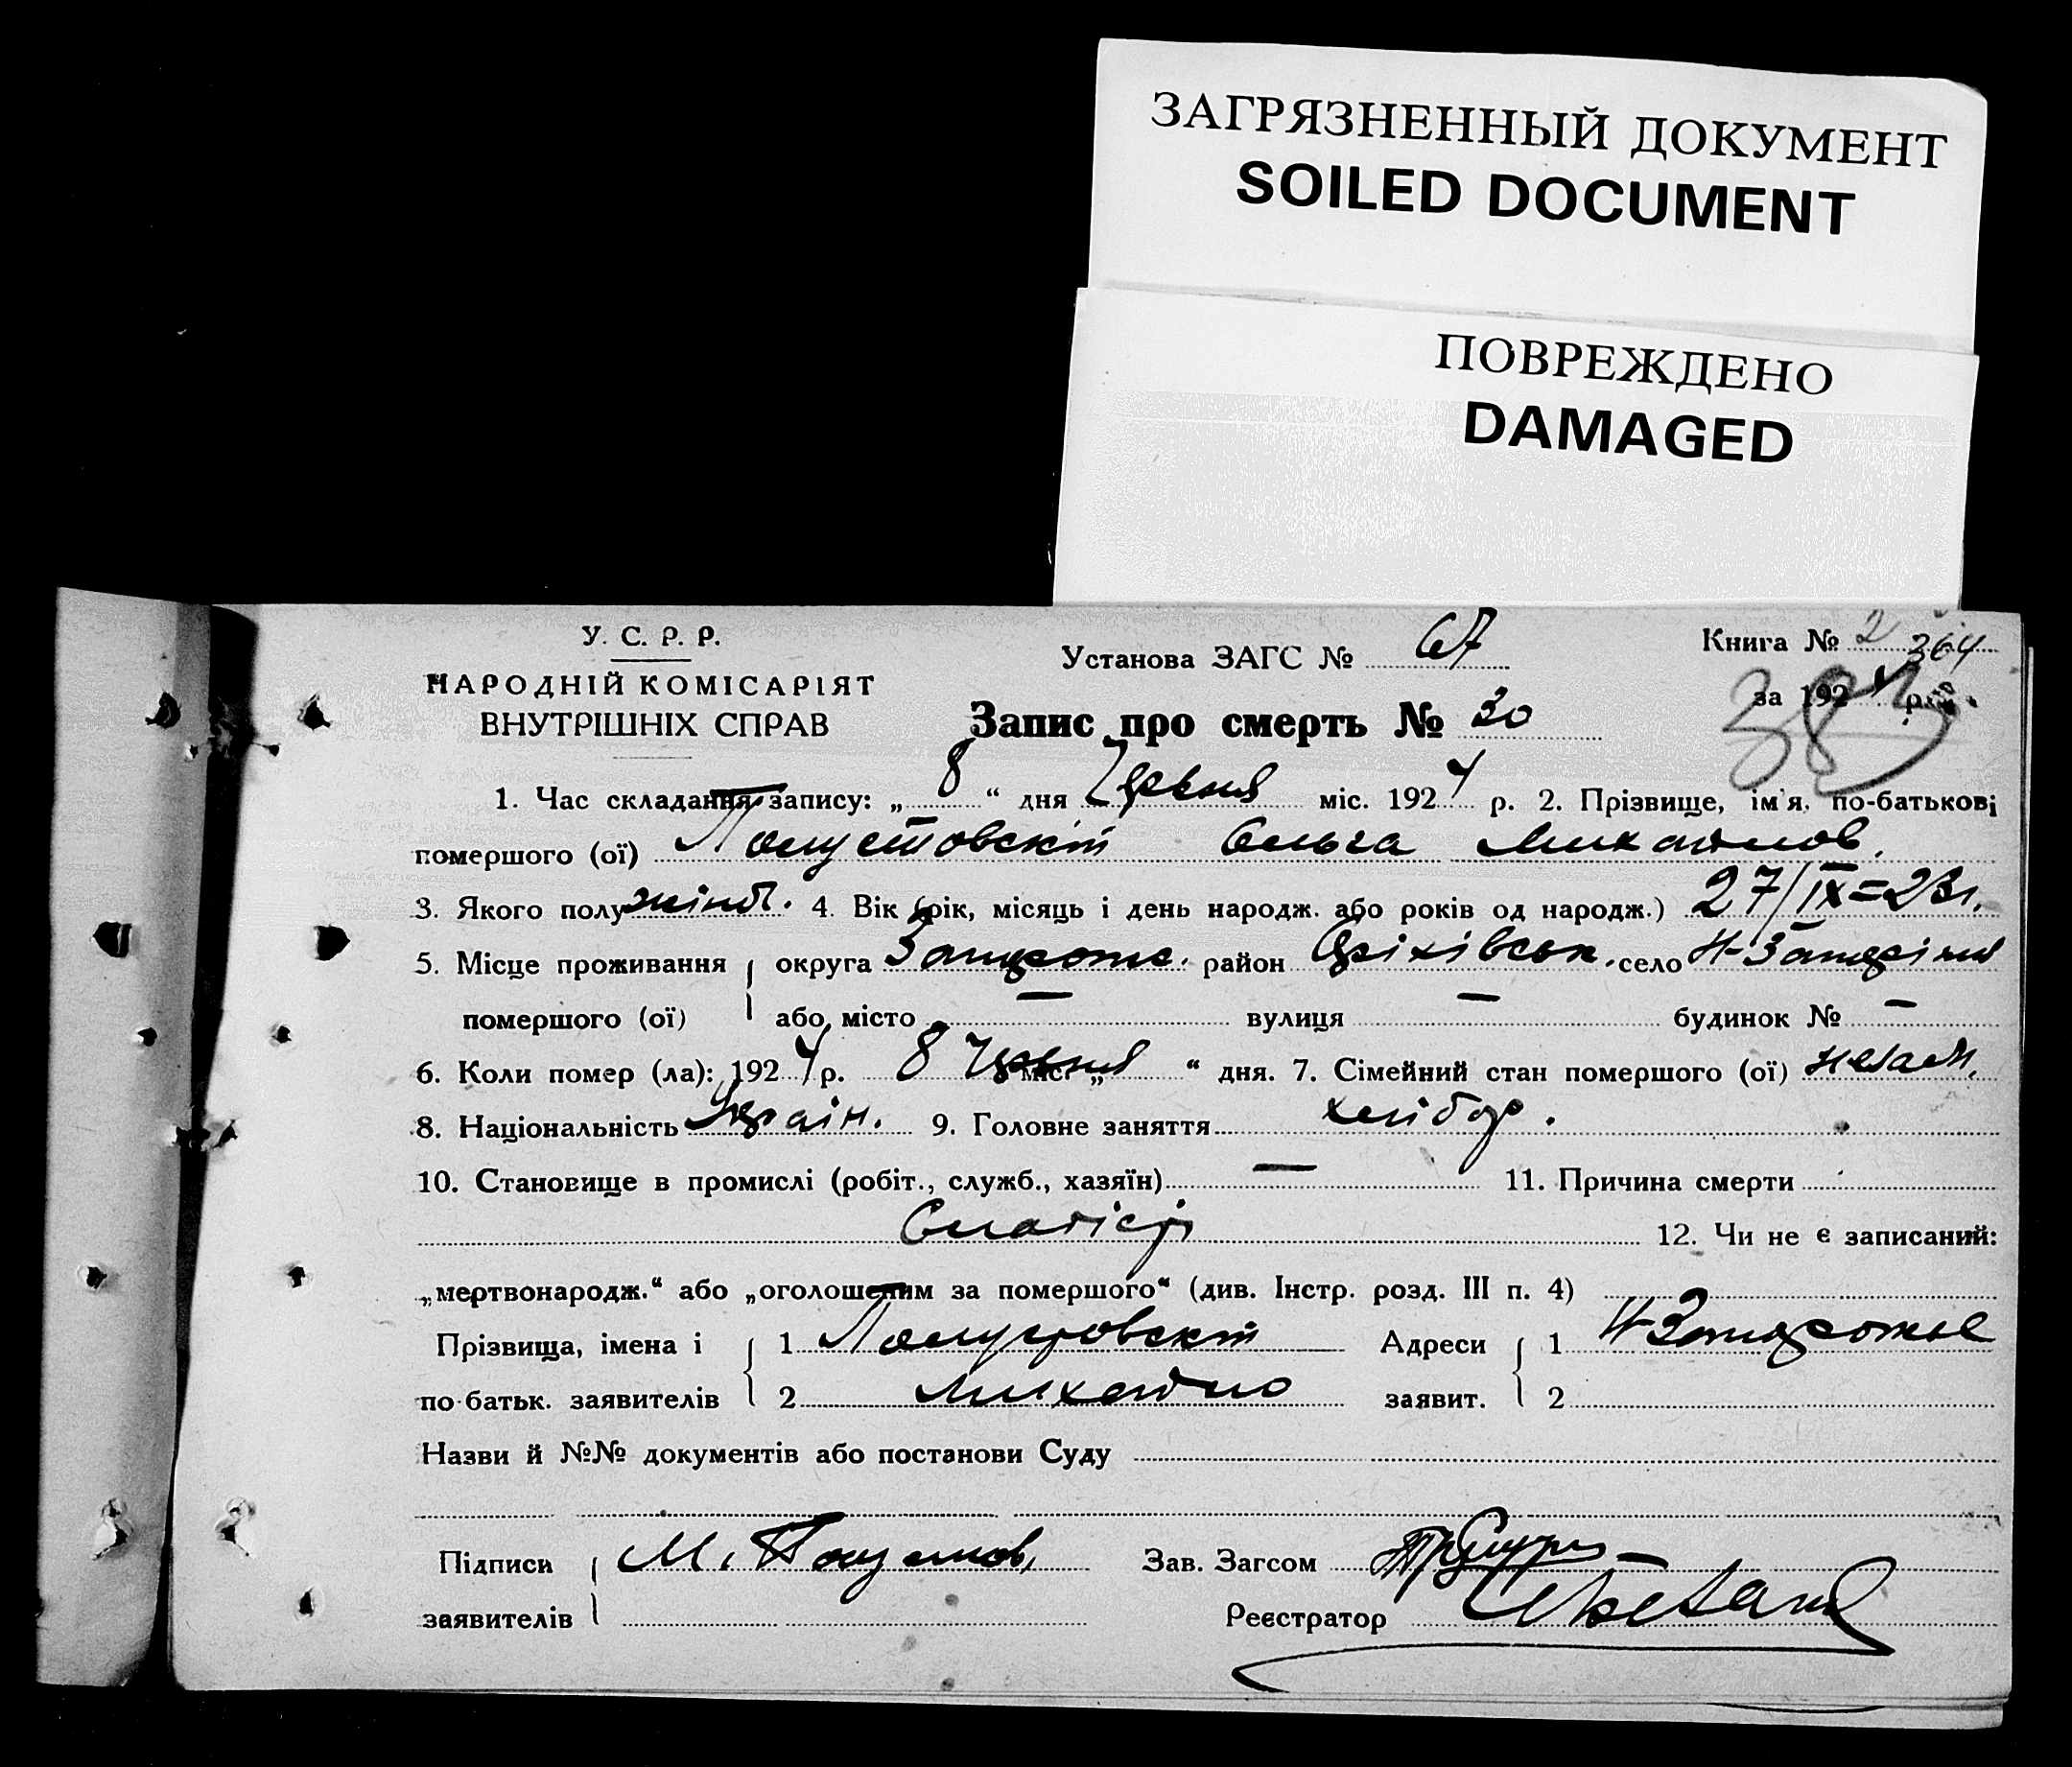 ЗАГРЯЗНЕННЫЙ ДОКУМЕНТ
SOILED DOCUMENT
ПОВРЕЖДЕНО
DAMAGED
У. С. Р. Р.
НАРОДНІЙ КОМІСАРІЯТ
ВНУТРІШНІХ СПРАВ
Установа ЗАГС № 67
Книга № 2 364
за 1924 р.
Запис про смерть № 30
1. Час складання запису: „ 8 “ дня Червня міс. 1924 р. 2. Прізвище, ім'я, по-батькові
помершого (ої) Полустовскій Ольга Михайлов.
3. Якого полу жіноч. 4. Вік (рік, місяць і день народж. або років од народж.) 27/IX=23г.
5. Місце проживання округа Запорож. район Оріхівськ. село Н-Запоріжя
помершого (ої) або місто — вулиця — будинок № —
6. Коли помер (ла): 1924 р. 8 Червня міс. „ “ дня. 7. Сімейний стан помершого (ої)
8. Національність Україн. 9. Головне заняття хлібор.
10. Становище в промислі (робіт., служб., хазяїн) — 11. Причина смерти
12. Чи не є записаний:
„мертвонародж.“ або „оголошеним за помершого“ (див. Інстр. розд. III п. 4)
Прізвища, імена і 1 Полустовскій Адреси 1 Н-Запорожье
по-батьк. заявителів 2 Михайло заявит. 2
Назви й №№ документів або постанови Суду
Підписи М. Зав. Загсом
заявителів Реєстратор